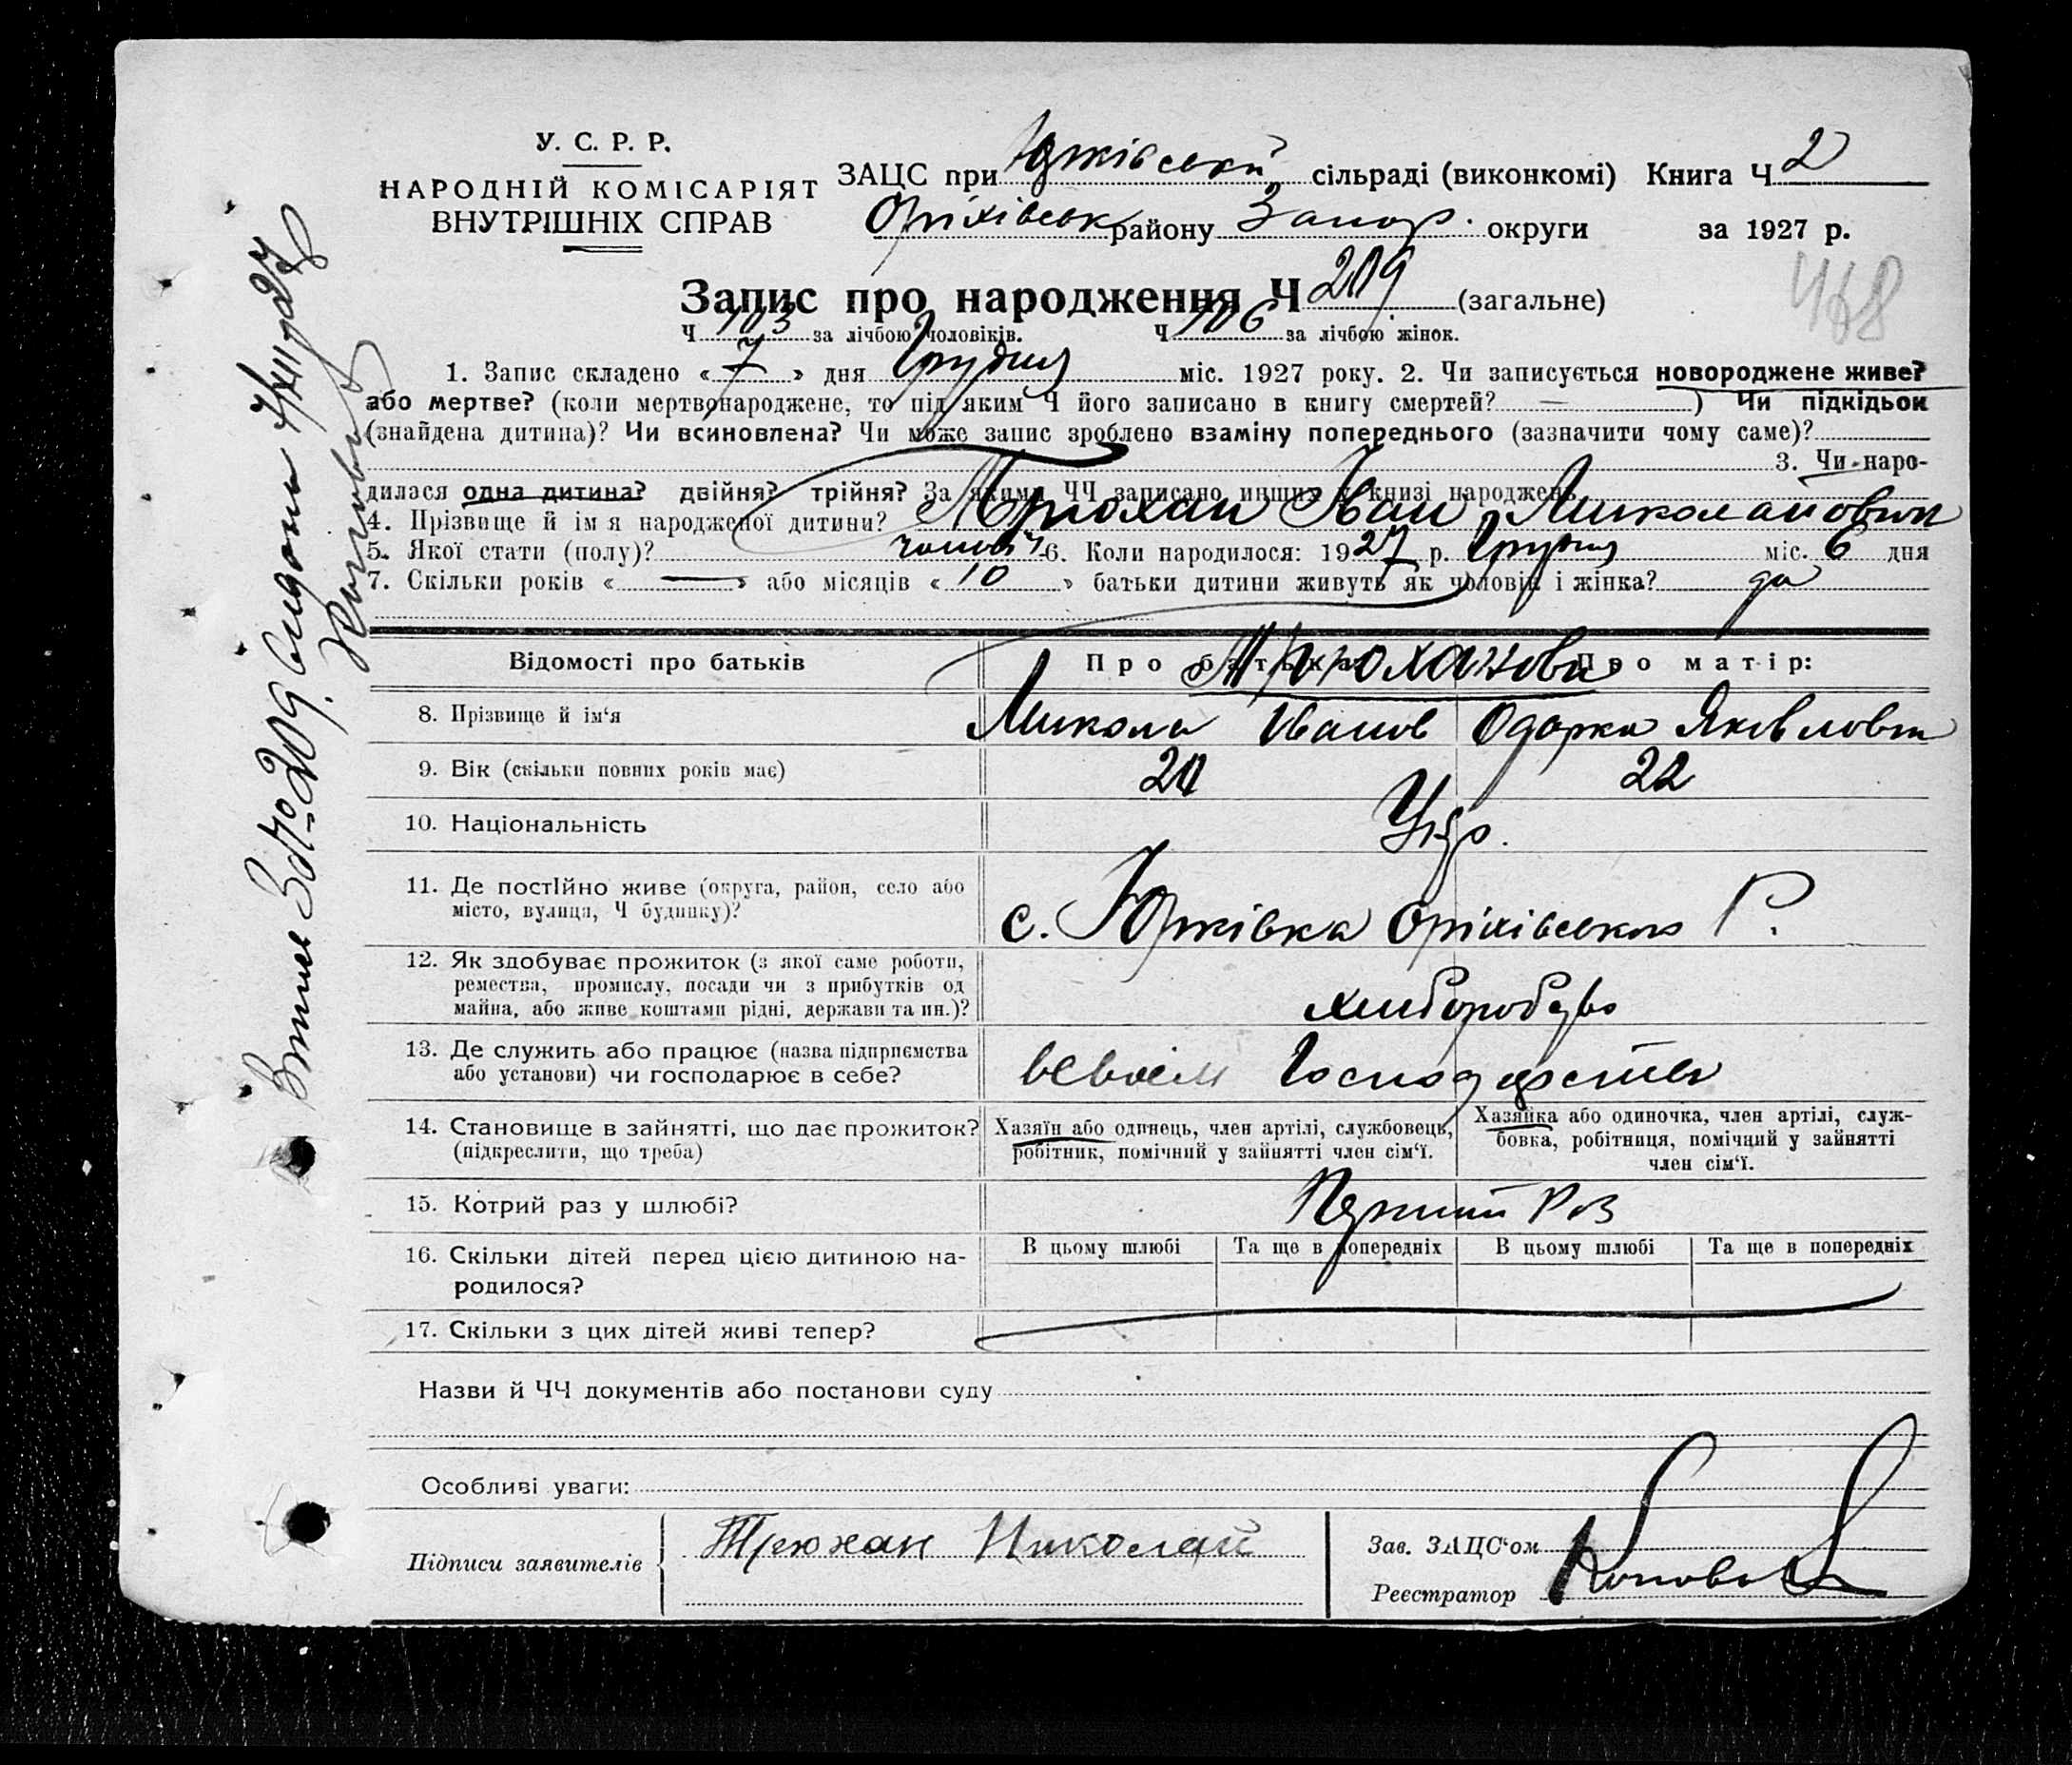 У. С. Р. Р.
НАРОДНІЙ КОМІСАРІЯТ
ВНУТРІШНІХ СПРАВ
ЗАЦС при Юрківській сільраді (виконкомі) Книга Ч 2
Оріхівськ району Запор. округи за 1927 р.
Запис про народження Ч 209 (загальне)
468
Ч 103 за лічбою чоловіків. Ч 106 за лічбою жінок.
1. Запис складено « 7 » дня Грудня міс. 1927 року. 2. Чи записується новороджене живе?
або мертве? (коли мертвонароджене, то під яким Ч його записано в книгу смертей? — ) Чи підкідьок
(знайдена дитина)? Чи всиновлена? Чи може запис зроблено взаміну попереднього (зазначити чому саме)?
3. Чи наро-
дилася одна дитина? двійня? трійня? За якими ЧЧ записано инших у книзі народжень
4. Прізвище й ім я народженої дитини? Трюхан Іван Миколайович
5. Якої стати (полу)? чоловіч 6. Коли народилося: 1927 р. Грудня міс. 6 дня
7. Скільки років « — » або місяців « 10 » батьки дитини живуть як чоловік і жінка? да
Відомості про батьків Про батька: Про матір:
Трюханови
8. Прізвище й ім‘я Микола Іванов Одарка Яковловна
9. Вік (скільки повних років має) 20 22
10. Національність Укр.
11. Де постійно живе (округа, район, село або
місто, вулиця, Ч будинку)? с. Юрківка Оріхівського Р.
12. Як здобуває прожиток (з якої саме роботи,
ремества, промислу, посади чи з прибутків од
майна, або живе коштами рідні, держави та ин.)? хліборобство
13. Де служить або працює (назва підприємства
або установи) чи господарює в себе? в своем Господарстви
14. Становище в зайнятті, що дає прожиток?
(підкреслити, що треба)
Хазяїн або одинець, член артілі, службовець,
робітник, помічний у зайнятті член сім‘ї.
Хазяйка або одиночка, член артілі, служ-
бовка, робітниця, помічний у зайнятті
член сім‘ї.
15. Котрий раз у шлюбі? Первий Раз
16. Скільки дітей перед цією дитиною на-
родилося?
В цьому шлюбі Та ще в попередніх В цьому шлюбі Та ще в попередніх
17. Скільки з цих дітей живі тепер?
Назви й ЧЧ документів або постанови суду
Особливі уваги:
Підписи заявителів Трюхан Николай
Зав. ЗАЦС‘ом
Реєстратор
№ 209 видани 7/XII 27